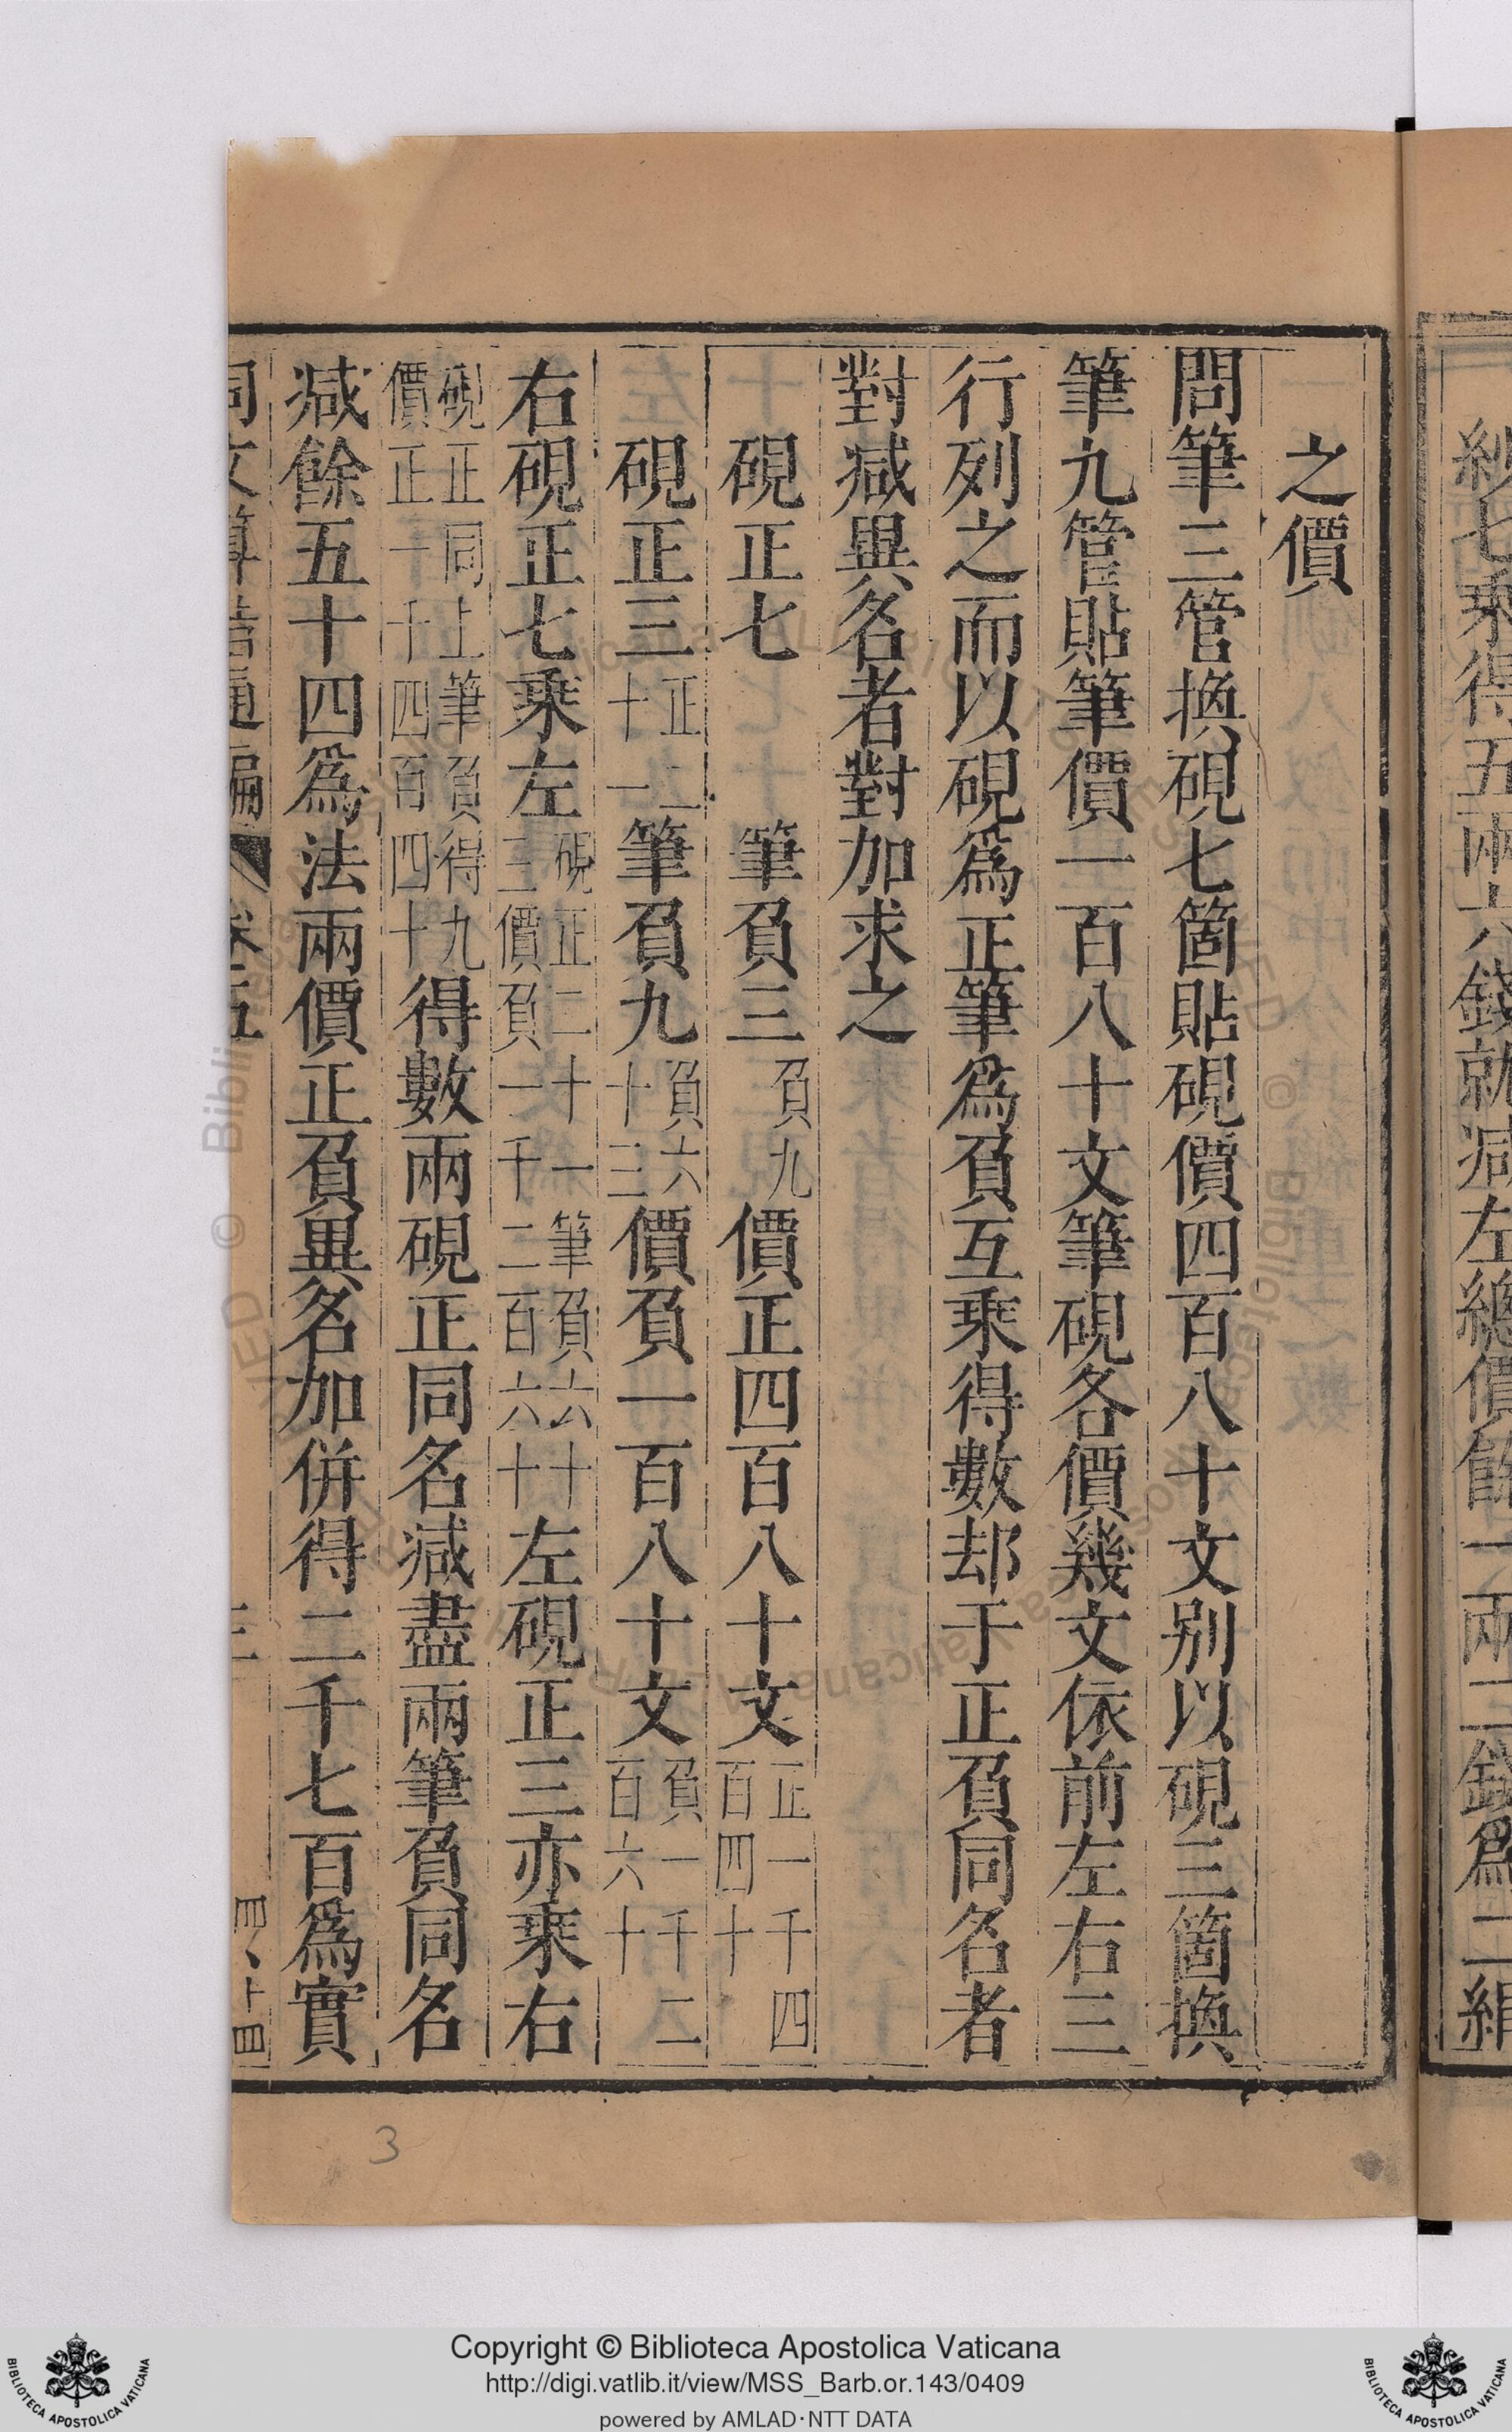 紗七乘得五兩六錢就减左總價餘一兩二錢爲二絹
之價
問筆三管換硯七箇貼硯價四百八十文别以硯三箇換
筆九管貼筆價一百八十文筆硯各價幾文依前左右三
行列之而以硯爲正筆爲負互乘得數却于正負同名者
對减異名者對加求之
硯正七 筆負三負九價正四百八十文正一千四百四十
硯正三正二十一筆負九負六十三價負一百八十文負一千二百六十
右硯正七乘左硯正二十一筆負六十三價負一千二百六十左硯正三亦乘右
硯正同上筆負得九價正一千四百四十得數兩硯正同名减盡兩筆負同名
减餘五十四爲法兩價正負異名加併得二千七百爲實
同文算指通編 卷五 三 四、十四
3
Copyright © Biblioteca Apostolica Vaticana
http://digi.vatlib.it/view/MSS_Barb.or.143/0409
powered by AMLAD·NTT DATA
BIBLIOTECA APOSTOLICA VATICANA
BIBLIOTECA APOSTOLICA VATICANA